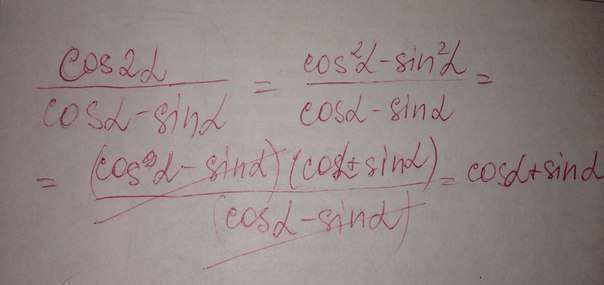 cos2α / cosα - sinα = cos²α - sin²α / cosα - sinα =
= (cosα - sinα)(cosα + sinα) / (cosα - sinα) = cosα + sinα